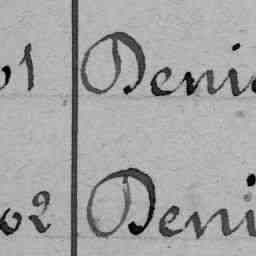 01 Deni
02 Deni